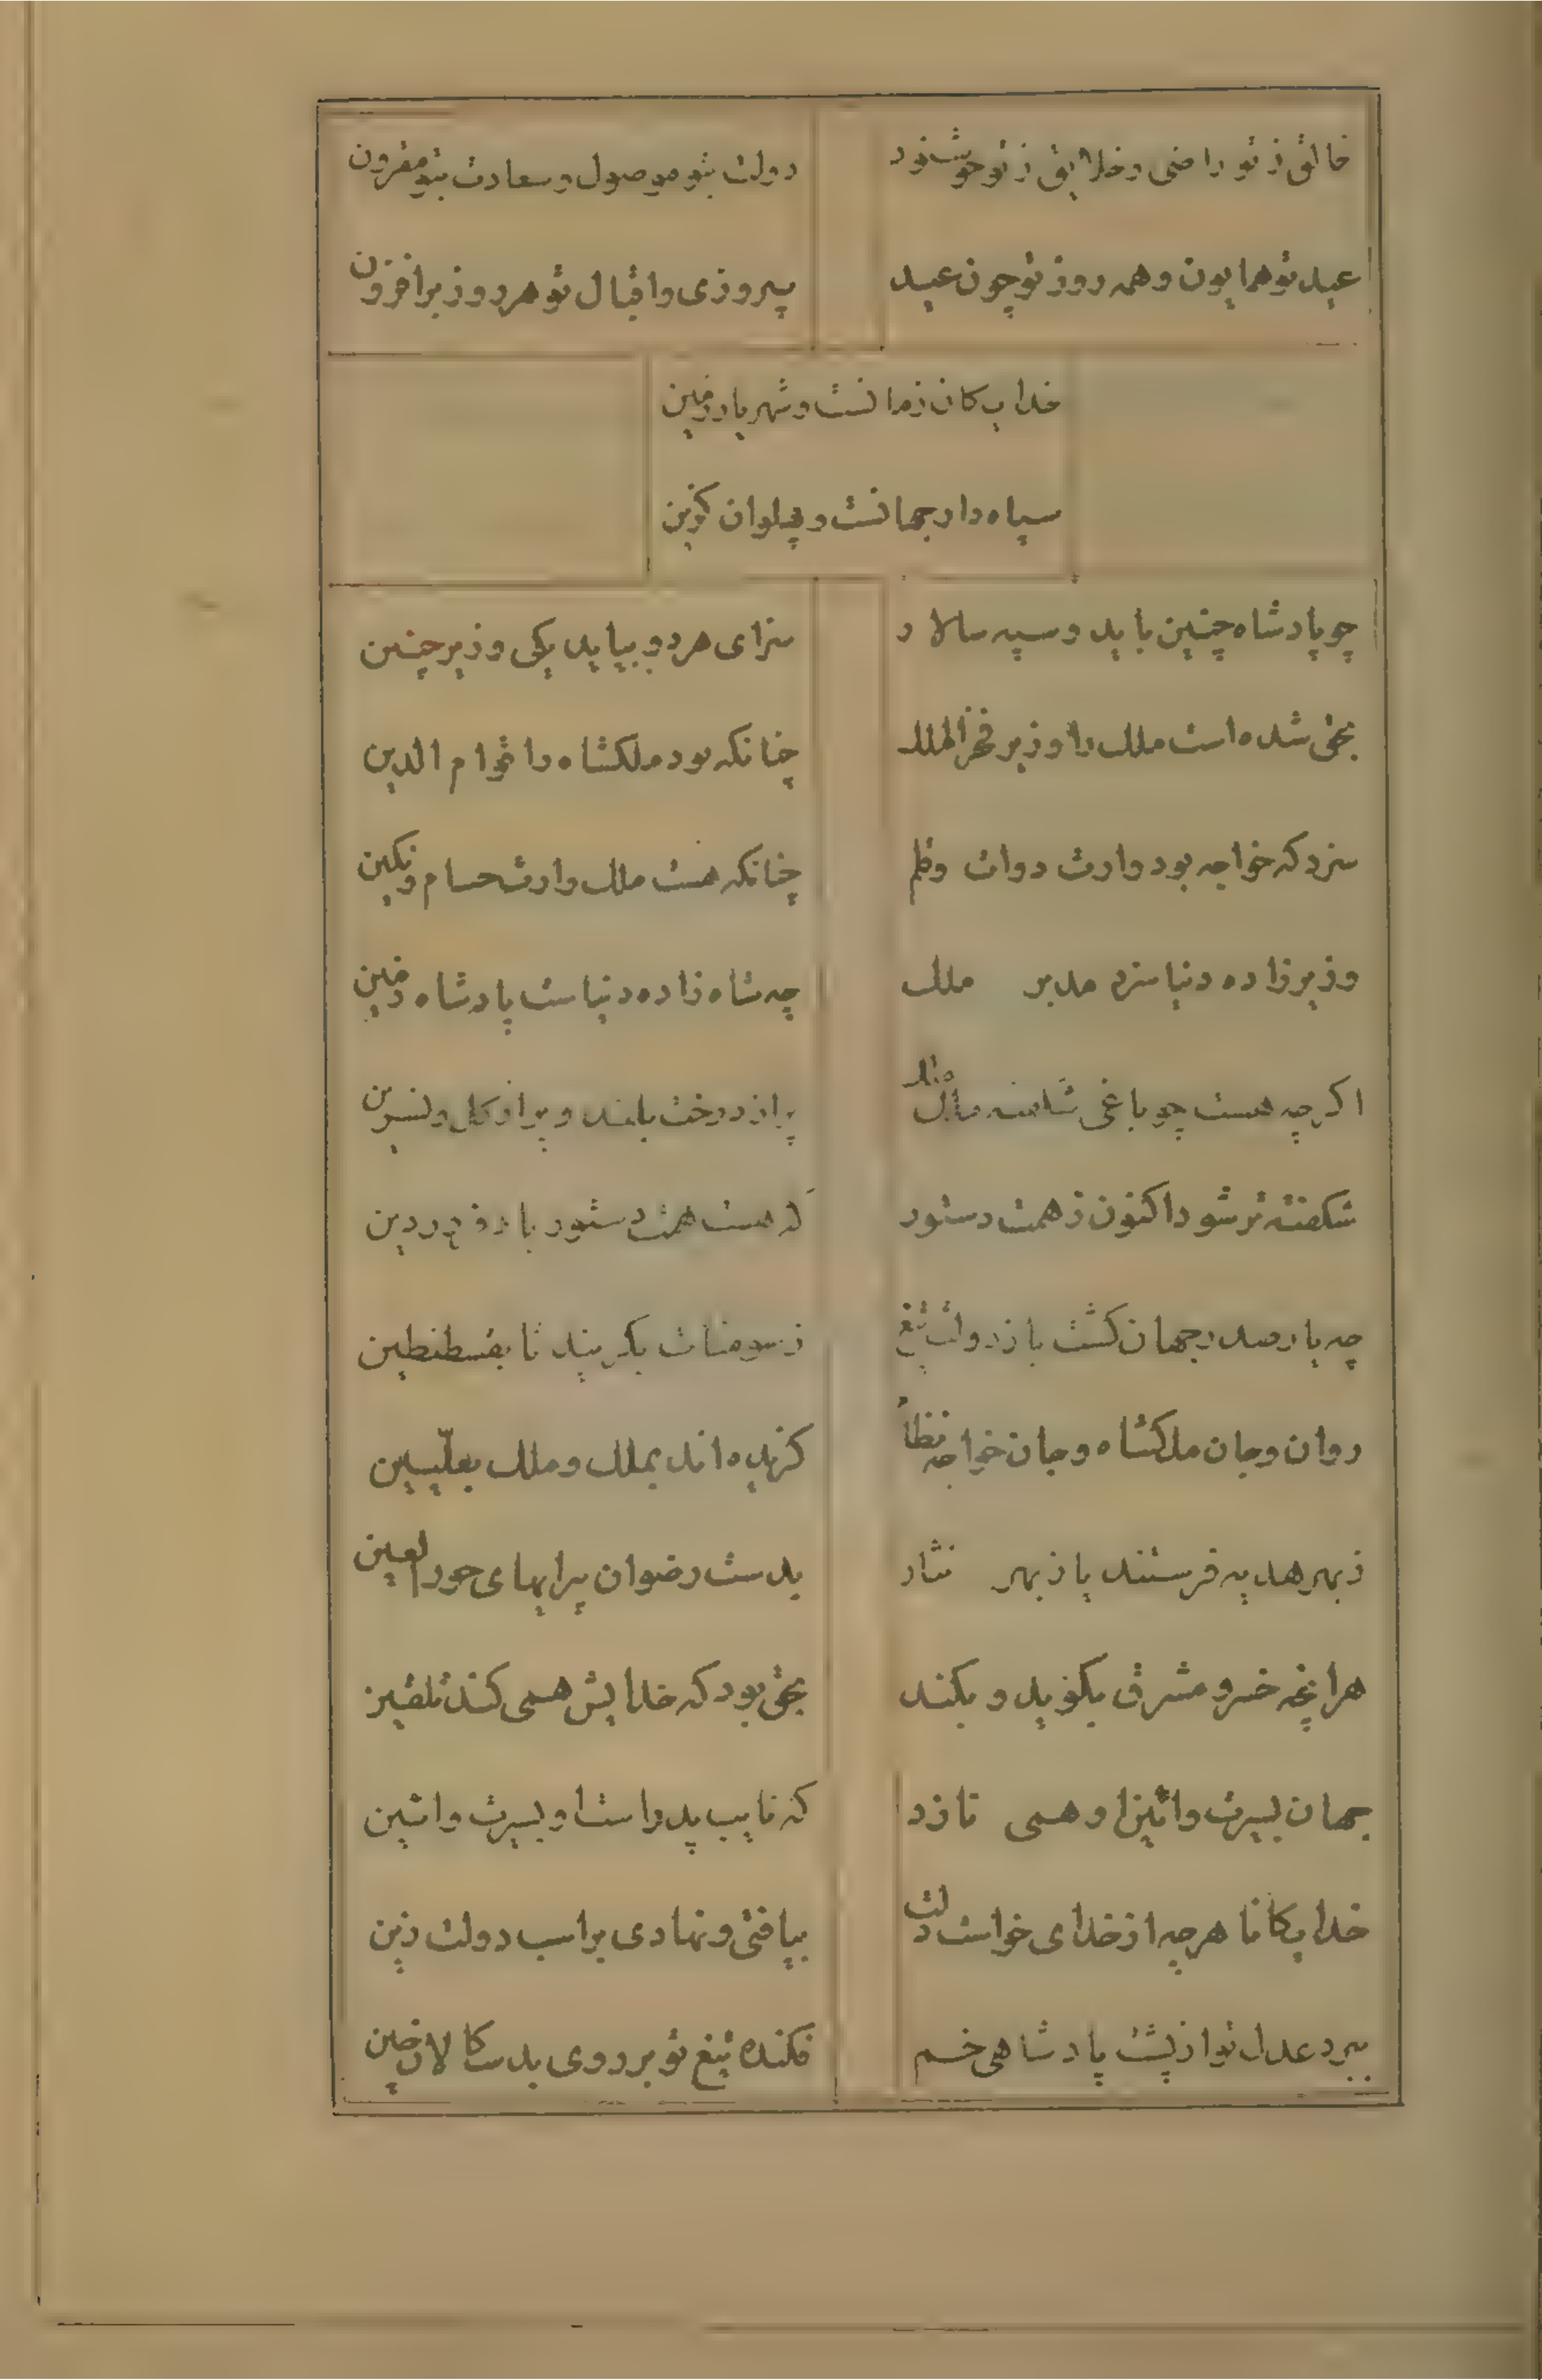 خالق ز تو راضی و خلایق ز تو خوشنود
دولت بتو موصول و سعادت بتو مقرون
عید تو همایون و همه روز تو چون عید
پیروزی و اقبال تو هر روز برافزون
خدایکان زمانست و شهریار زمین
سپاه دار جهانست و پهلوان کزین
چو پادشاه چنین باید و سپه سالار
سزای هر دو بباید یکی وزیر چنین
بحق شده است ملک را وزیر فخرالملک
چنانکه بود ملکشاه را قوام الدین
سزد که خواجه بود وارث دوات و قلم
چنانکه هست ملک وارث حسام و نکین
وزیر زاده دنیا سزد مدبر ملک
چه شاه زاده دنیاست پادشاه زمین
اکرچه هست چو باغی شکفته ملک ملک
پر از درخت بلند و پر از کل و نسرین
شکفته تر شود اکنون ز همت دستور
که هست همت دستور باد فروردین
چه پارصد رجهان کشت باز دولت تیغ
ز سومنات بکیرند تا بقسطنطین
روان و جان ملکشاه و جان خواجه نظام
کزیده‌اند بملک و ملک بعلّیین
ز بهر هدیه فرستند یا ز بهر نثار
بدست رضوان پیرایهای حورالعین
هرانچه خسرو مشرق بکوید و بکند
بحق بود که خدایش همی کند تلقین
جهان بسیرت و آئین او همی نازد
که نایب پدر است او بسیرت و آئین
خدایکانا هرچه از خدای خواست دلت
بیافتی و نهادی بر اسب دولت زین
ببرد عدل تو از پشت پادشاهی خم
فکنده تیغ تو بر روی بدسکالان چین